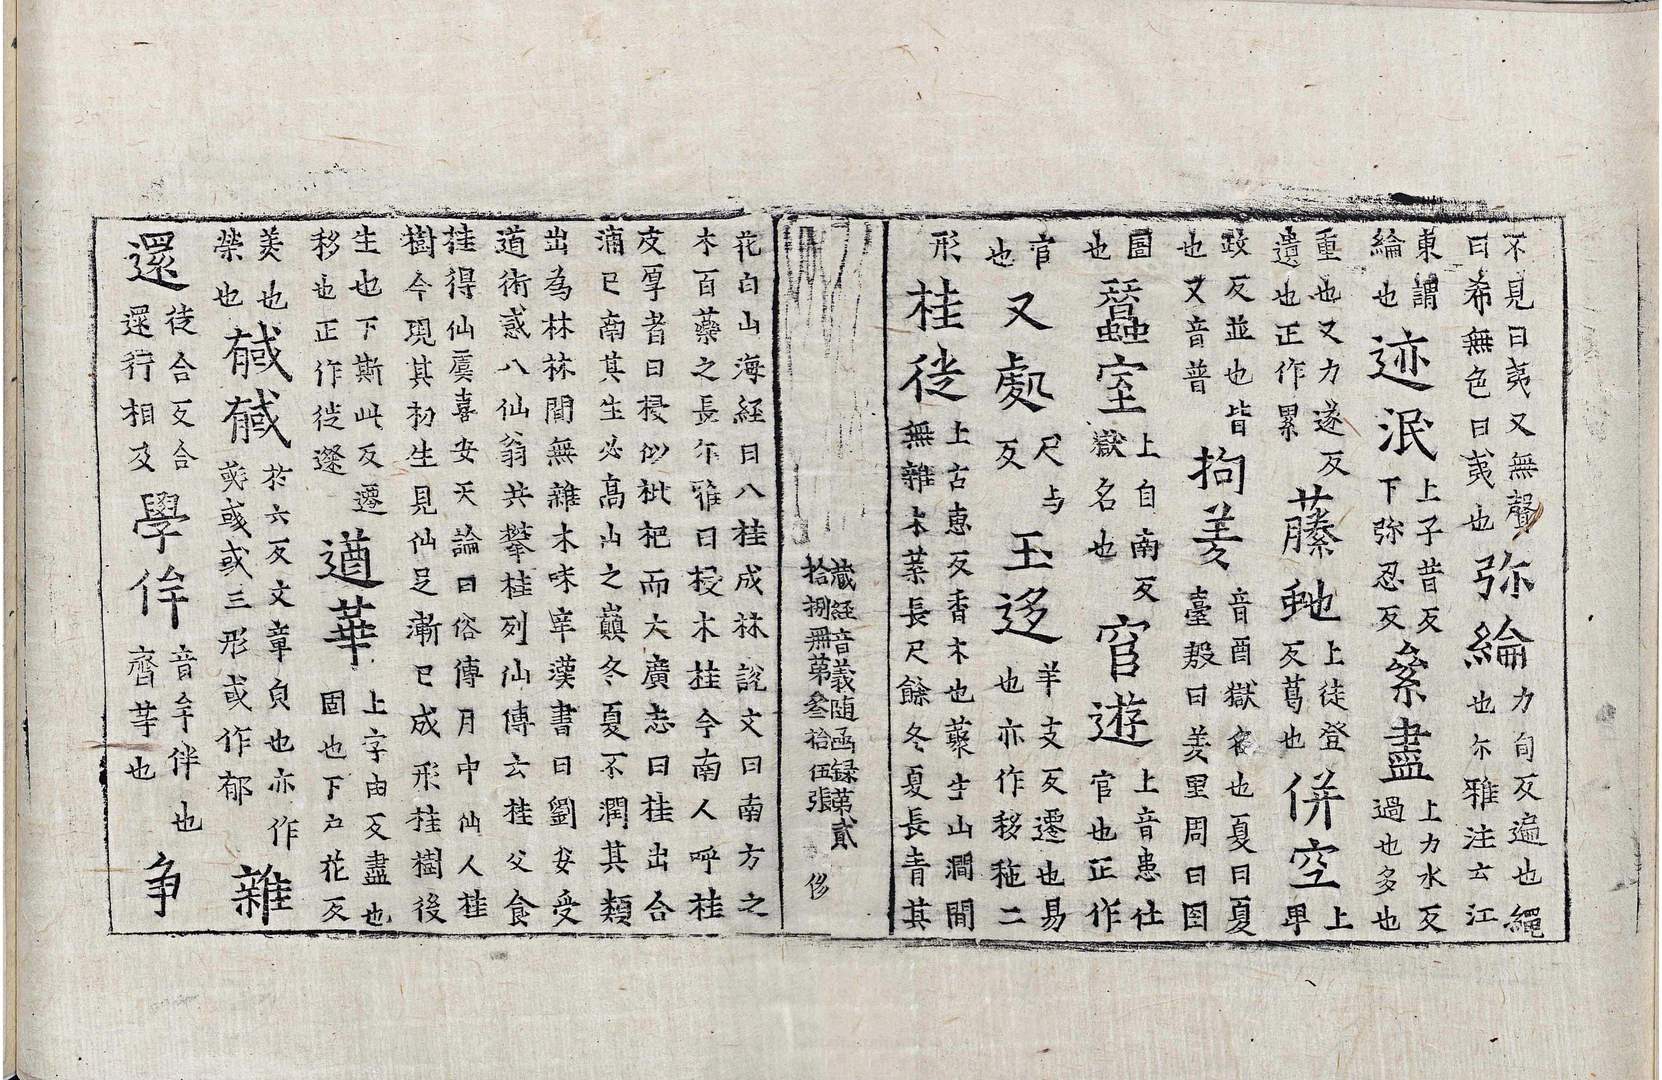 不見曰夷又無聲
曰希無色曰夷也
弥綸
力旬反遍也繩
也尒雅注云江
東謂
綸也
迹泯
上子昔反
下弥忍反
絫盡
上力水反
過也多也
重也又力遂反
遺也正作累
藤虵
上徒登
反葛也
併空
上
畢
政反並也皆
也又音普
拘羑
音酉獄名也夏曰夏
臺殷曰羑里周曰囹
圄
也
蠶室
上自南反
獄名也
宦遊
上音患仕
官也正作
官
也
又處
尺与
反
玉迻
羊支反遷也易
也亦作移𥿫二
形
桂徙
上古惠反香木也藥生山澗間
無雜木葉長尺餘冬夏長青其
藏經音義随函録苐貳
拾捌册苐叄拾伍張
侈
花白山海経曰八桂成林說文曰南方之
木百藥之長尒雅曰梫木桂今南人呼桂
皮厚者曰梫似枇杷而大廣志曰桂出合
浦已南其生必高山之巔冬夏不凋其類
出為林林間無雜木味辛漢書曰劉安受
道術惑八仙翁共攀桂列仙傳云桂父食
桂得仙虞喜安天論曰俗傳月中仙人桂
樹今現其初生見仙足漸已成形桂樹後
生也下斯此反遷
移也正作徙𨖷
遒華
上字由反盡也
固也下戸花反
美也
榮也
䬑䬑
於六反文章皃也亦作
或三形或作郁
雜
還
徒合反合
還行相及
學侔
音牟伴也
齊等也
争